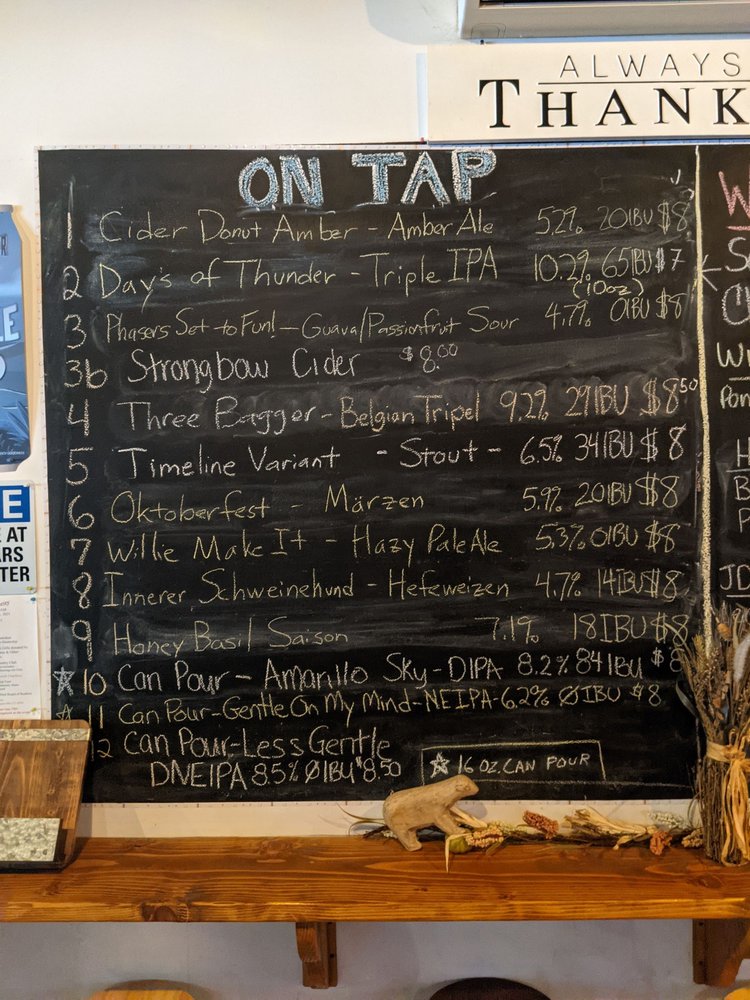 ALWAYS
THANK
ON TAP
1 Cider Donut Amber - Amber Ale 5.2% 20IBU $8
2 Day's of Thunder - Triple IPA 10.2% 65IBU $7
(10oz)
3 Phasers Set to Fun! - Guava/Passionfruit Sour 4.7% 0IBU $8
3b Strongbow Cider $8.00
4 Three Bagger - Belgian Tripel 9.2% 29IBU $8.50
5 Timeline Variant - Stout - 6.5% 34IBU $8
6 Oktoberfest - Märzen 5.9% 20IBU $8
7 Willie Make It - Hazy Pale Ale 5.3% 0IBU $8
8 Innerer Schweinehund - Hefeweizen 4.7% 14IBU $8
9 Honey Basil Saison 7.1% 18IBU $8
☆ 10 Can Pour - Amarillo Sky - DIPA 8.2% 84IBU $8
☆ 11 Can Pour - Gentle On My Mind - NEIPA - 6.2% ØIBU $8
12 Can Pour - Less Gentle
DNEIPA 8.5% ØIBU $8.50
☆ 16 OZ. CAN POUR
E
AT
ARS
TER
JD